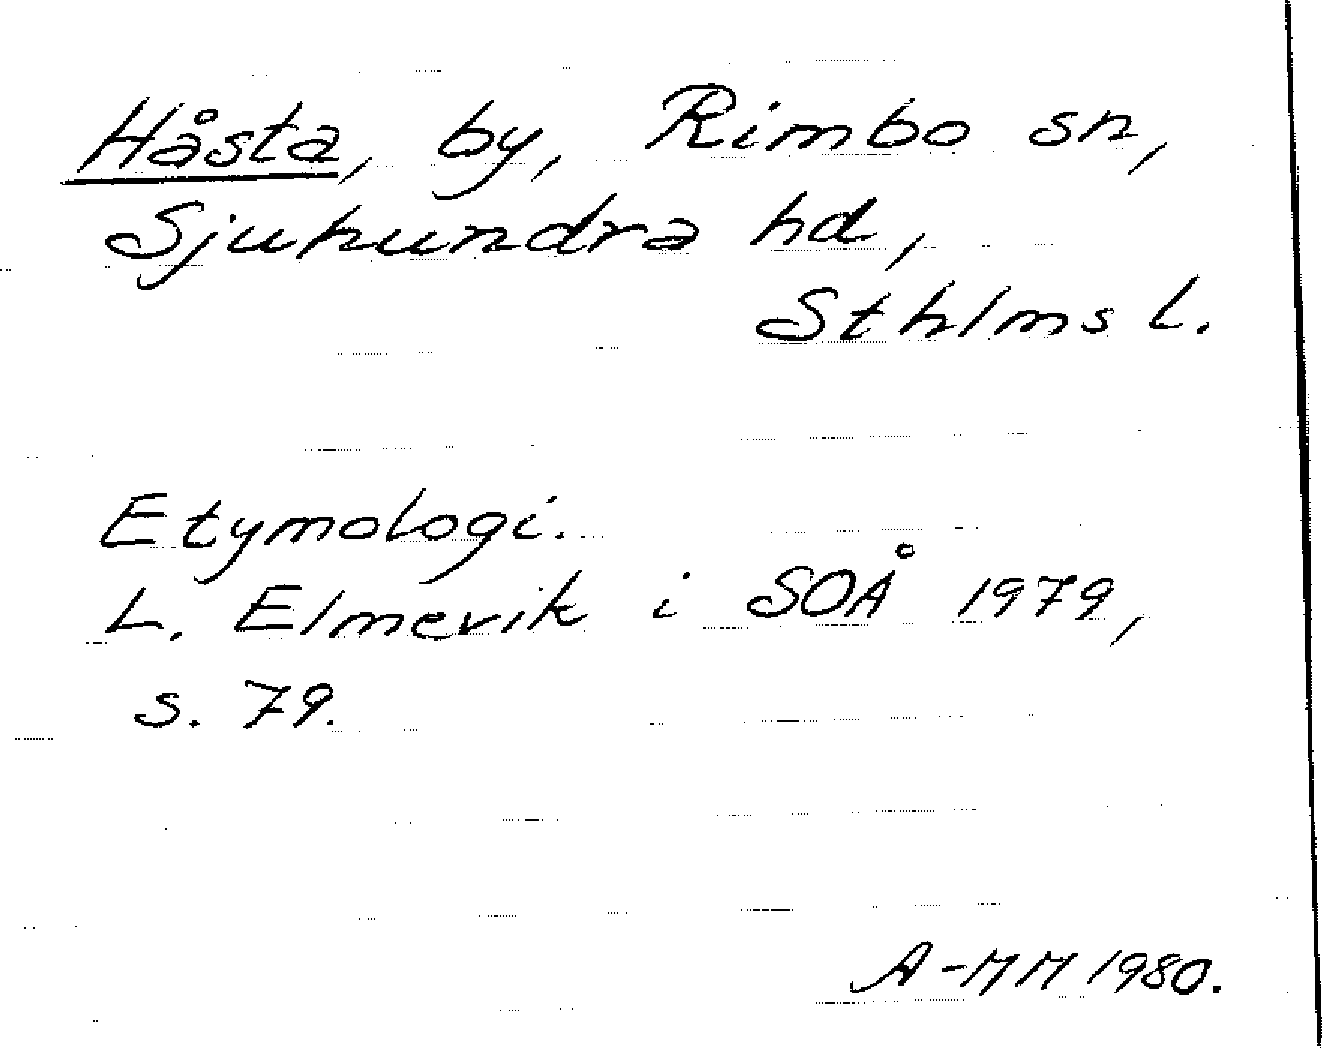 Håsta, by, Rimbo sn,
Sjuhundra hd,
Sthlms l.
Etymologi.
L. Elmevik i SOÅ 1979,
s. 79.
A-MM 1980.